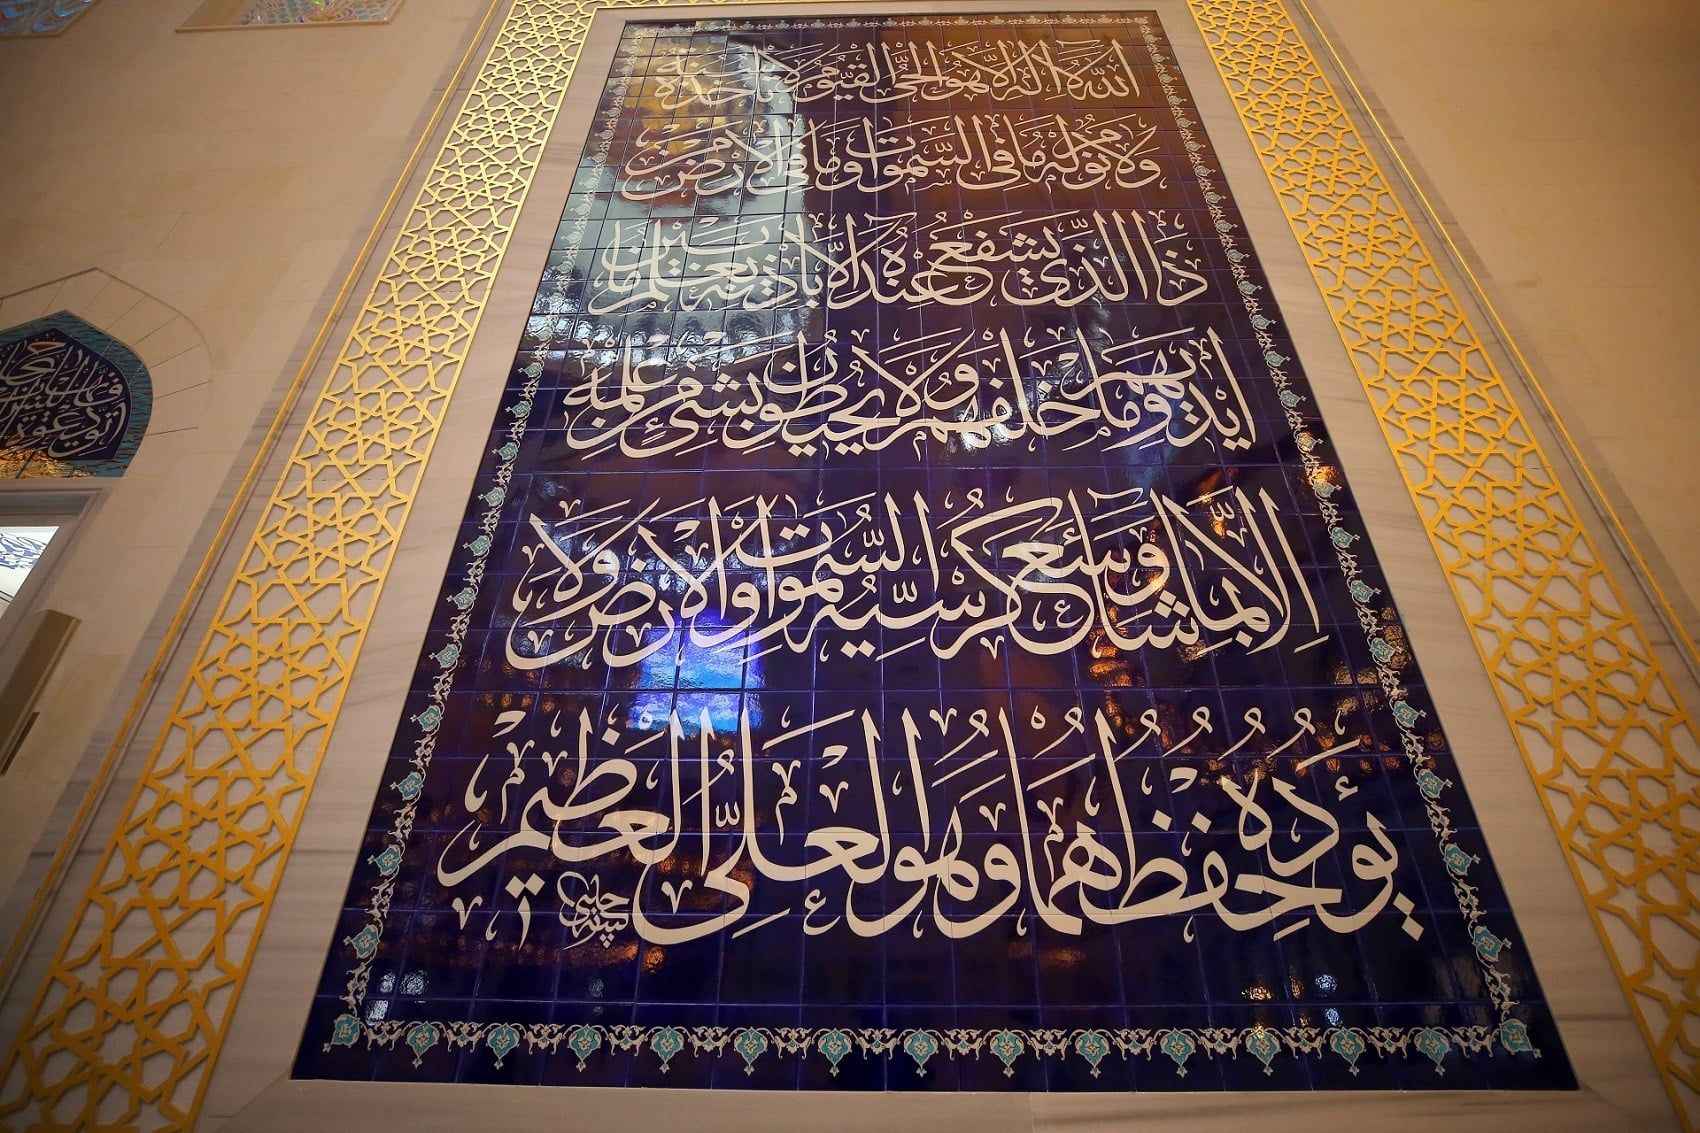 اَللهُ لَا اِلٰهَ اِلَّا هُوَ الْحَىُّ الْقَيُّومُ لَا تَأْخُذُهُ سِنَةٌ
وَلَا نَوْمٌ لَهُ مَا فِى السَّمٰوَاتِ وَمَا فِى الْاَرْضِ مَنْ
ذَا الَّذِى يَشْفَعُ عِنْدَهُ اِلَّا بِاِذْنِهِ يَعْلَمُ مَا بَيْنَ
اَيْدِيهِمْ وَمَا خَلْفَهُمْ وَلَا يُحِيطُونَ بِشَىْءٍ مِنْ عِلْمِهِ
اِلَّا بِمَا شَاءَ وَسِعَ كُرْسِيُّهُ السَّمٰوَاتِ وَالْاَرْضَ وَلَا
يَؤُدُهُ حِفْظُهُمَا وَهُوَ الْعَلِىُّ الْعَظِيمُ